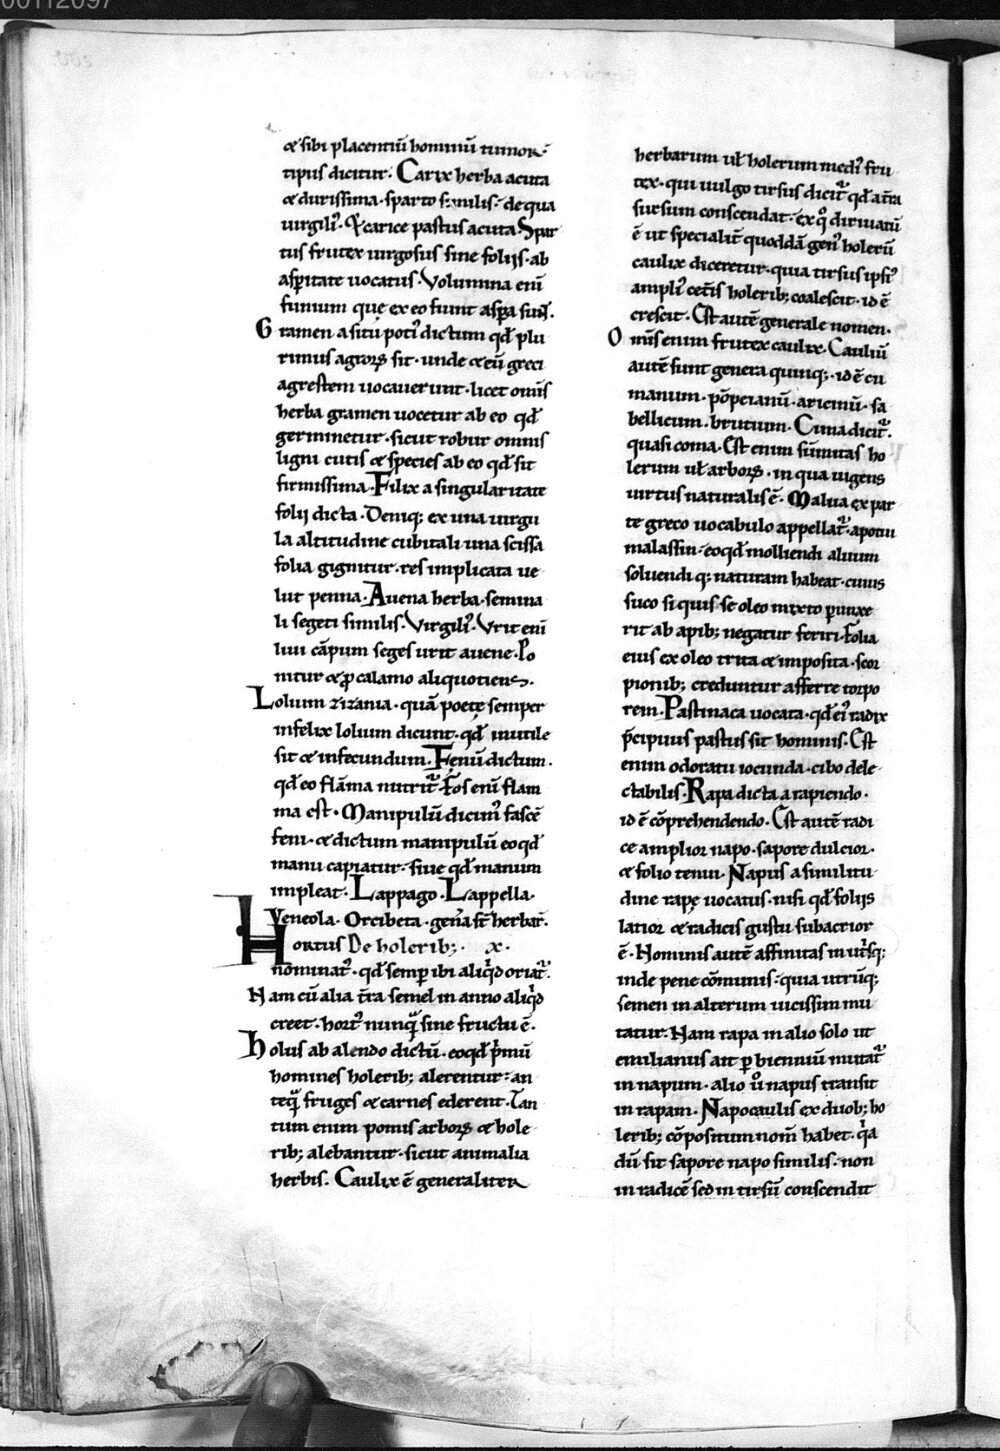 00112097
& sibi placentiū hominū tumor.
tipus dicitur. Carix herba acuta
& durissima. sparto similis. de qua
uirgili᾿. & carice pastus acuta. Spar
tus frutex uirgosus sine folijs. ab
asp̱itate uocatus. Volumina eni
funium quę ex eo fiunt asp̱a sunt.
Gramen a situ poti᾿ dictum qđ plu
rimis agroꝝ sit. unde & eū greci
agrestem uocauerunt. licet omīs
herba gramen uocetur ab eo qđ
germinetur. sicut robur omnis
ligni cutis & species ab eo qđ sit
firmissima. Filix a singularitate
folij dicta. Deniq; ex una uirgu
la altitudine cubitali una scissa
folia gignitur. res implicata ue
lut penna. Auena herba. semina
li segeti similis. Virgili᾿. Vrit enī
lini cāpum seges urit auene. Po
nitur & ꝓ calamo aliquotiens.
Lolium zizania. quā poetę semper
infelix lolium dicunt. qđ inutile
sit & infecundum. Fenū dictum.
qđ eo flāma nutrit᾿. fos enī flam
ma est. Manipulū dicim᾿ fascē
feni. & dictum manipulū eo qđ
manu capiatur. siue qđ manum
impleat. Lappago. Lappella.
Veneola. Orcibeta. geña sт̄ herbar̄.
Hortus De holerib; . x.
nominat᾿. qđ semꝑ ibi aliq̇d oriat᾿.
Nam cū alia tr̄a semel in anno aliq̇d
creet. hort᾿ nunqͣ̄ sine fructu ē.
Holus ab alendo dictū. eo qđ p̄mū
homines holerib; alerentur. an
teqͣ̄ fruges & carnes ederent. Tan
tum enim pomis arboꝝ & hole
rib; alebantur. sicut animalia
herbis. Caulix ē generaliter
herbarum uł holerum medi᾿ fru
tex. qui uulgo tirsus dicit᾿ qđ a tr̄a
sursum conscendat. ex q̊ diriuatū
ē ut specialit̄ quoddā gen᾿ holerū
caulix diceretur. quia tirsus ipsi᾿
ampli᾿ cet̄is holerib; coalescit. id ē
crescit. Est autē generale nomen.
Omīs enim frutex caulix. Cauliū
autē sunt genera quinq;. id ē cu
manum. pōpeianū. aricinū. sa
bellicum. brutium. Cima dicit᾿.
quasi coma. Est enim sūmitas ho
lerum uł arboꝝ. in qua uigens
uirtus naturalis ē. Malua ex par
te greco uocabulo appellat᾿. apotu
malassin. eo qđ molliendi aluum
soluendi q; naturam habeat. cuius
suco si quis se oleo mixto ꝑunxe
rit ab apib; negatur feriri. Folia
eius ex oleo trita & imposita. scor
pionib; creduntur afferre torpo
rem. Pastinaca uocata. qđ ei᾿ radix
p̄cipuus pastus sit hominis. Est
enim odoratu iocunda. cibo dele
ctabilis. Rapa dicta a rapiendo.
id ē cōprehendendo. Est autē radi
ce amplior napo. sapore dulcior.
& folio tenui. Napus a similitu
dine rapę uocatus. nisi qđ folijs
latior & radicis gustu subacrior
ē. Nominis autē affinitas in ut̄sq;
inde pene cōmunis. quia utrūq;
semen in alterum uicissim mu
tatur. Nam rapa in alio solo ut
emilianus ait ꝑ bienniū mutat᾿
in napum. alio ů napus transit
in rapam. Napocaulis ex duob; ho
lerib; cōpositum nom̄ habet. q̇a
dū sit sapore napo similis. non
in radicē sed in tirsū conscendit